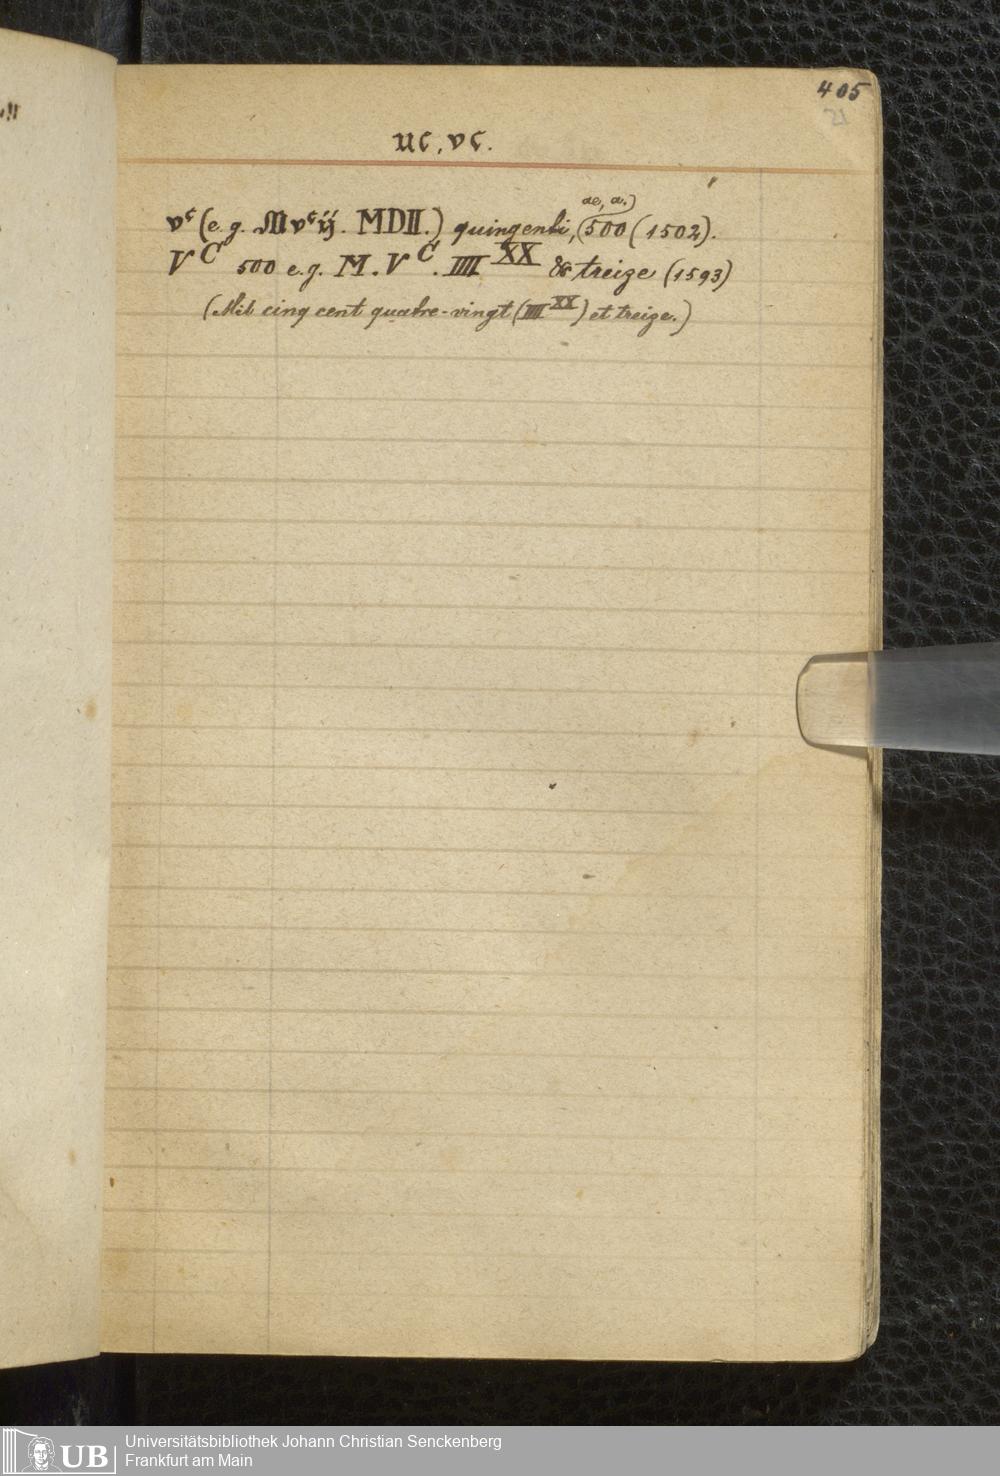 405
21
uc, vc.
vᶜ (e. g. Mvᶜij. MDII.) quingenti, (ae, a.) 500 (1502).
V C 500 e. g. M. V C. IIII XX & treize (1593)
(Mil cinq cent quatre-vingt (IIII XX) et treize.)
UB
Universitätsbibliothek Johann Christian Senckenberg
Frankfurt am Main